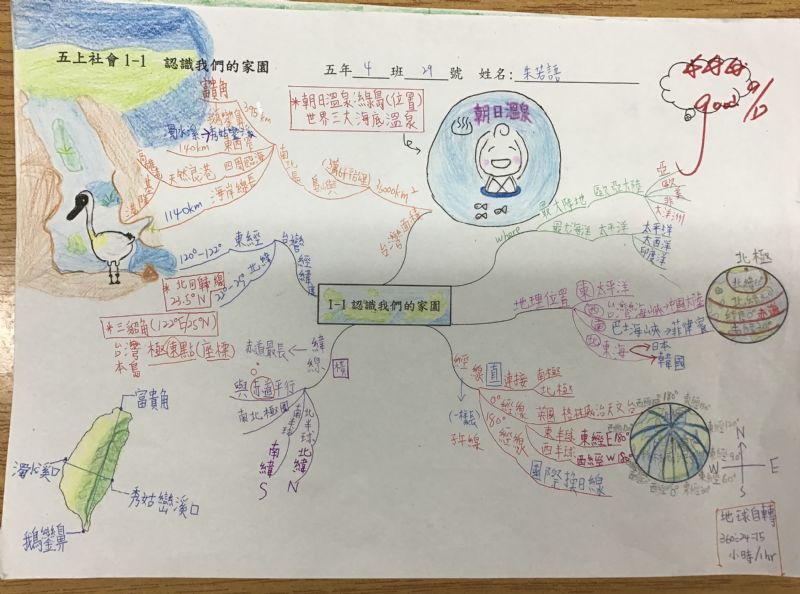 五上社會 1-1 認識我們的家園
五年 4 班 29 號 姓名: 朱若語
good
富貴角
鵝鑾鼻
395km
*朝日溫泉:綠島(位置)
世界三大海底溫泉
朝日溫泉
濁水溪→秀姑巒溪
140km 東西寬
南北長
天然良港 四周臨海
高雄港
基隆港
1140km 海岸總長
36000km²
台灣面積
120°-122° 東經
22°-25° 北緯
台灣經緯度
*北回歸線
23.5°N
*三貂角(122°E/25°N)
台灣本島 極東點(座標)
where
最大陸地 歐亞大陸
亞
歐
美
非
大洋洲
最大海洋 太平洋
太平洋
大西洋
印度洋
1-1 認識我們的家園
地理位置
東 太平洋
西 台灣海峽→中國大陸
南 巴士海峽→菲律賓
北 東海
日本
韓國
北極
赤道
緯線
橫
赤道最長
與赤道平行
南北極圈
南半球 南緯 S
北半球 北緯 N
經線
直 連接 南極
北極
0°經線 英國 格林威治天文台
180°經線
東半球 東經E 180°
西半球 西經W 180°
國際換日線
(一樣長)
富貴角
濁水溪口
秀姑巒溪口
鵝鑾鼻
N
W
E
S
地球自轉
360÷24=15
小時/1hr